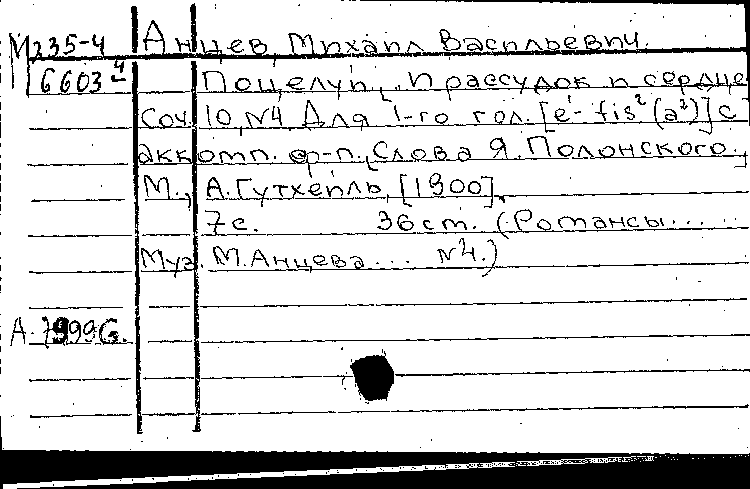 М235-4 Анцев, Михаил Васильевич.
6603⁴ Поцелуй, и рассудок и сердце
Соч. 10, №4. Для 1-го гол. [e'-fis²(a²)] с
аккомп. ф-п. Слова Я. Полонского.
М., А. Гутхейль, [1900].
7с. 36 cm. (Романсы ......
Муз. М. Анцева... №4.)
А. 7999G.